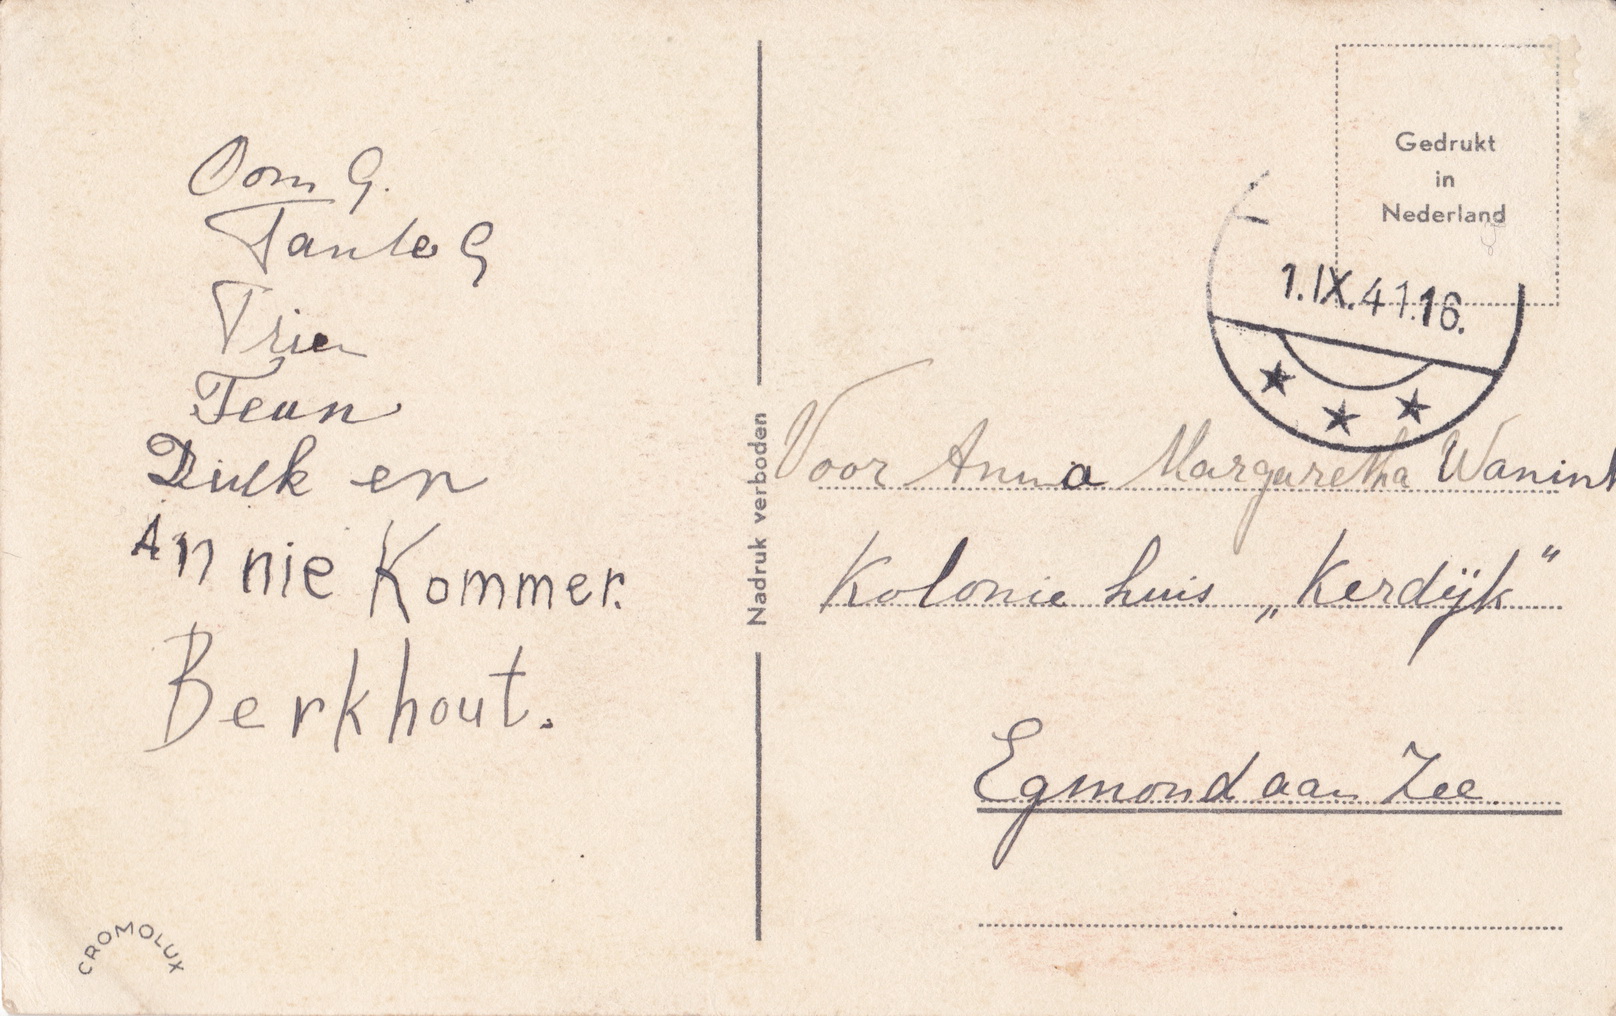 Oom G.
Tante G
Trien
Teun
Dirk en
Annie Kommer.
Berkhout.
CROMOLUX
Nadruk verboden
Gedrukt
in
Nederland
1.IX.41.16.
Voor Anna Margaretha Wanink
Koloniehuis „Kerdijk"
Egmond aan Zee.